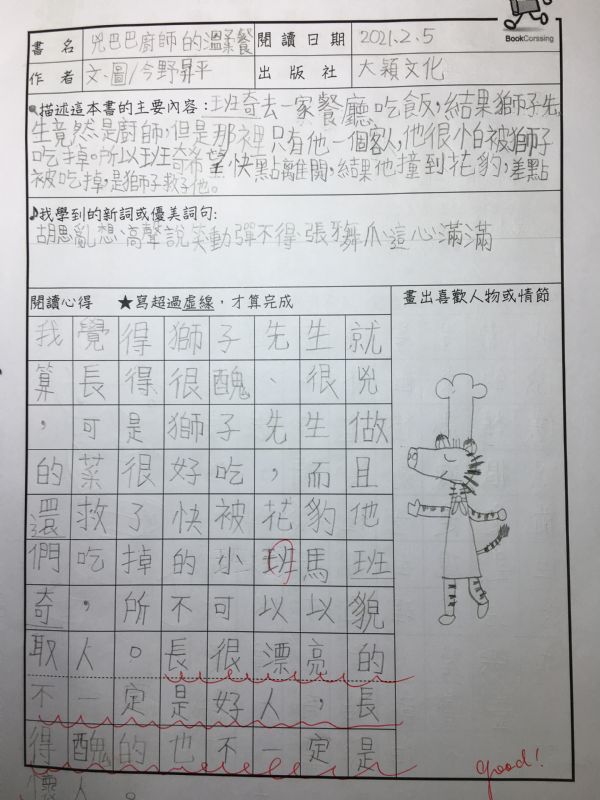 BookCorssing
書名 兇巴巴廚師的溫柔餐 閱讀日期 2021.2.5
作者 文、圖/今野昇平 出版社 大穎文化
描述這本書的主要內容:班奇去一家餐廳吃飯,結果獅子先
生竟然是廚師,但是那裡只有他一個客人,他很怕被獅子
吃掉。所以班奇希望快點離開,結果他撞到花豹,差點
被吃掉,是獅子救了他。
我學到的新詞或優美詞句:
胡思亂想、高聲說笑動彈不得、張牙舞爪、這心滿滿
閱讀心得 ★寫超過虛線,才算完成
畫出喜歡人物或情節
我覺得獅子先生就
算長得很醜、很兇
,可是獅子先生做
的菜很好吃,而且
還救了快被花豹他
們吃掉的小班馬班
奇,所不可以以貌
取人。長很漂亮的
不一定是好人,長
得醜的也不一定是
人。
good!